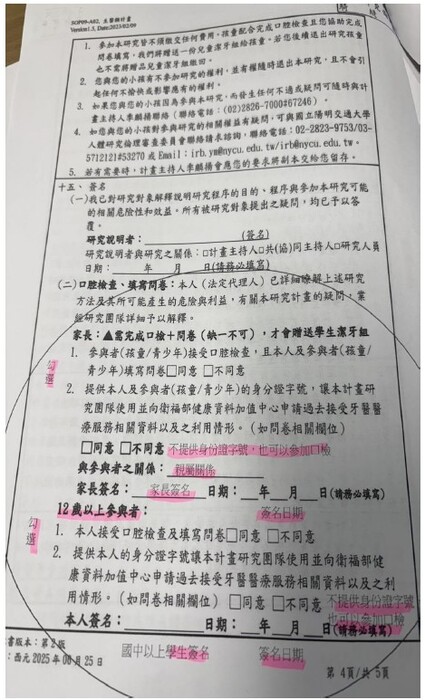 SOP09-A02, 生醫類計畫
Version1.3, Date:2023/02/09
1. 參加本研究皆不須繳交任何費用。孩童配合完成口腔檢查且您協助完成
問卷填寫，我們將贈送一份兒童潔牙組給孩童。若您後續退出研究孩童
也不需將贈品兒童潔牙組繳回。
2. 您與您的小孩有不參加研究的權利，並有權隨時退出本研究，且不會引
起任何不愉快或影響應有的權利。
3. 如果您與您的小孩因為參與本研究，而發生任何不適或疑問可隨時與計
畫主持人李麟揚聯絡(聯絡電話：(02)2826-7000#67246)。
4. 如您與您的小孩對參與研究的相關權益有疑問，可與國立陽明交通大學
人體研究倫理審查委員會聯絡請求諮詢，聯絡電話：02-2823-9753/03-
5712121#53270 或 Email：irb.ym@nycu.edu.tw/irb@nycu.edu.tw.
5. 若有需要時，計畫主持人李麟揚會應您的要求將副本交給您留存。
十五、 簽名
(一)我已對研究對象解釋說明研究程序的目的、程序與參加本研究可能
的相關危險性和效益。所有被研究對象提出之疑問，均已予以答
覆。
研究說明者：(簽名)
研究說明者與研究之關係：□計畫主持人□共(協)同主持人□研究人員
日期： 年 月 日(請務必填寫)
(二)口腔檢查、填寫問卷：本人(法定代理人)已詳細瞭解上述研究
方法及其所可能產生的危險與利益，有關本研究計畫的疑問，業
經研究團隊詳細予以解釋。
家長：▲需完成口檢+問卷(缺一不可)，才會贈送學生潔牙組
勾選
1. 參與者(孩童/青少年)接受口腔檢查，且本人及參與者(孩童/
青少年)填寫問卷□同意 □不同意
2. 提供本人及參與者(孩童/青少年)的身分證字號，讓本計畫研
究團隊使用並向衛福部健康資料加值中心申請過去接受牙醫醫
療服務相關資料以及之利用情形。(如問卷相關欄位)
□同意 □不同意 不提供身份證字號，也可以參加口檢
與參與者之關係： 親屬關係
家長簽名： 家長簽名 日期： 年 月 日(請務必填寫)
12歲以上參與者： 簽名日期
勾選
1. 本人接受口腔檢查及填寫問卷□同意 □不同意
2. 提供本人的身分證字號讓本計畫研究團隊使用並向衛福部健
康資料加值中心申請過去接受牙醫醫療服務相關資料以及之利
用情形。(如問卷相關欄位) □同意 □不同意 不提供身份證字號
也可以參加口檢
本人簽名： 日期： 年 月 日(請務必填寫)
國中以上學生簽名 簽名日期
書版本：第2版
：西元 2025年08月25日
第 4頁/共 5頁